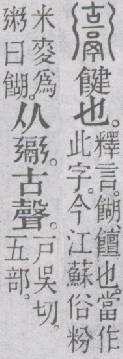 䭈也。
釋言。餬饘也。當作
此字。今江蘇俗粉
米麥爲
粥曰餬。
从䰜。古聲。
戶吳切。
五部。